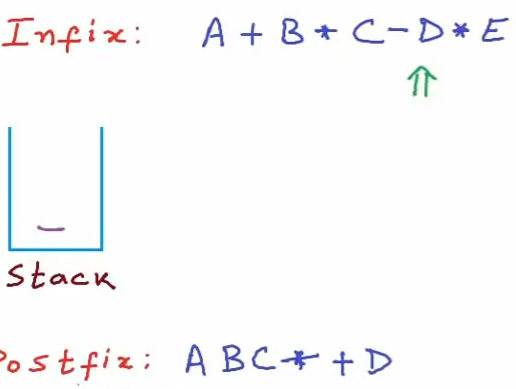 Infix: A + B * C - D * E
-
Stack
Postfix: A B C * + D